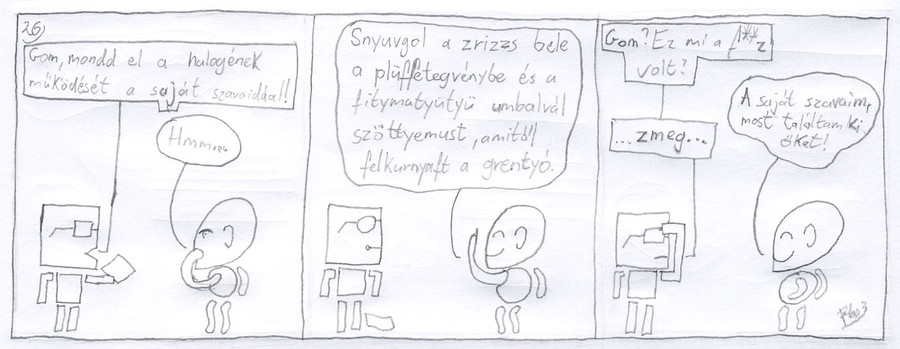 26
Gom, mondd el a halogének
működését a saját szavaiddal!
Hmm...
Snyuvgol a zrizzs bele
a plüffetegvénybe és a
fitymatyütyü umbalvál
szöttyemust, amitől
felkurnyaft a grentyó.
Gom? Ez mi a
volt?
...zmeg...
A saját szavaim,
most találtam ki
őket!